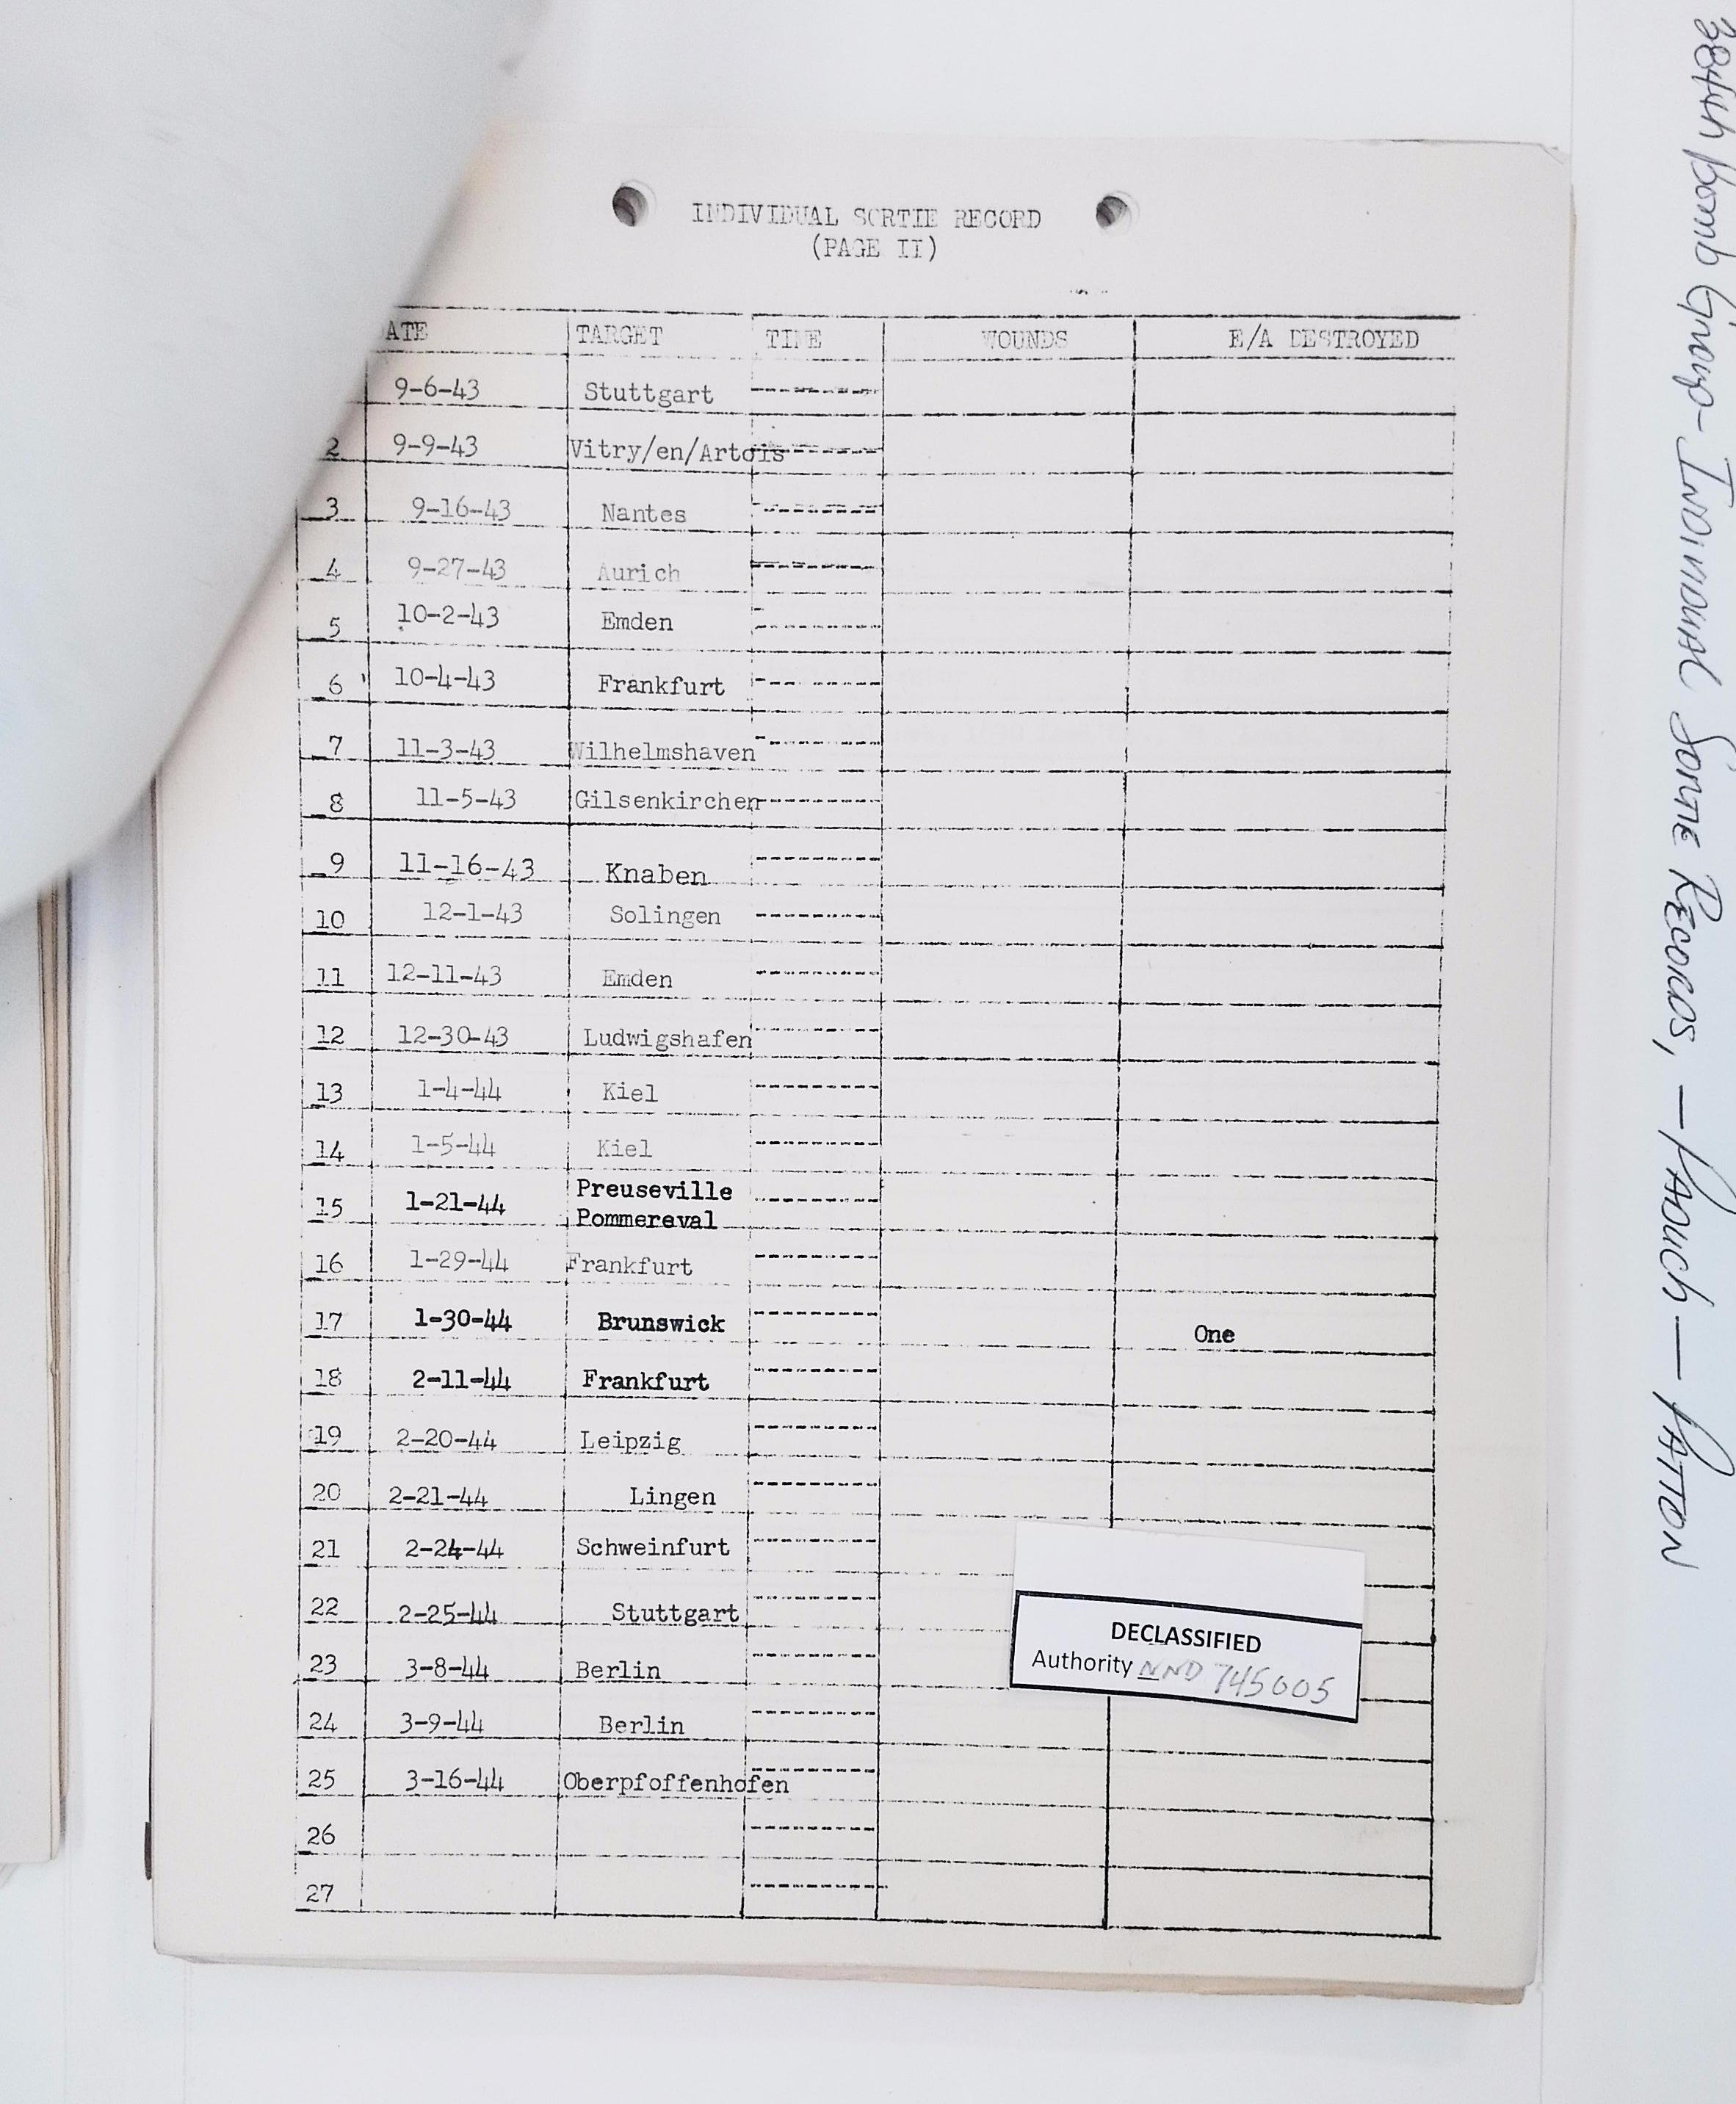 INDIVIDUAL SORTIE RECORD
(PAGE II)
ATE TARGET TIME WOUNDS E/A DESTROYED
9-6-43 Stuttgart ----------
2 9-9-43 Vitry/en/Artois ----------
3 9-16-43 Nantes ----------
4 9-27-43 Aurich ----------
5 10-2-43 Emden ----------
6 10-4-43 Frankfurt ----------
7 11-3-43 Wilhelmshaven ----------
8 11-5-43 Gilsenkirchen ----------
9 11-16-43 Knaben ----------
10 12-1-43 Solingen ----------
11 12-11-43 Emden ----------
12 12-30-43 Ludwigshafen ----------
13 1-4-44 Kiel ----------
14 1-5-44 Kiel ----------
15 1-21-44 Preuseville ----------
Pommereval
16 1-29-44 Frankfurt ----------
17 1-30-44 Brunswick ---------- One
18 2-11-44 Frankfurt ----------
19 2-20-44 Leipzig ----------
20 2-21-44 Lingen ----------
21 2-24-44 Schweinfurt ----------
22 2-25-44 Stuttgart ----------
23 3-8-44 Berlin ----------
24 3-9-44 Berlin ----------
25 3-16-44 Oberpfoffenhofen ----------
26 ----------
27 ----------
DECLASSIFIED
Authority NND 745005
384th Bomb Group - INDIVIDUAL SORTIE RECORDS, - PADUCH — PATTON